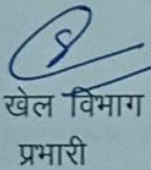 खेल विभाग
प्रभारी